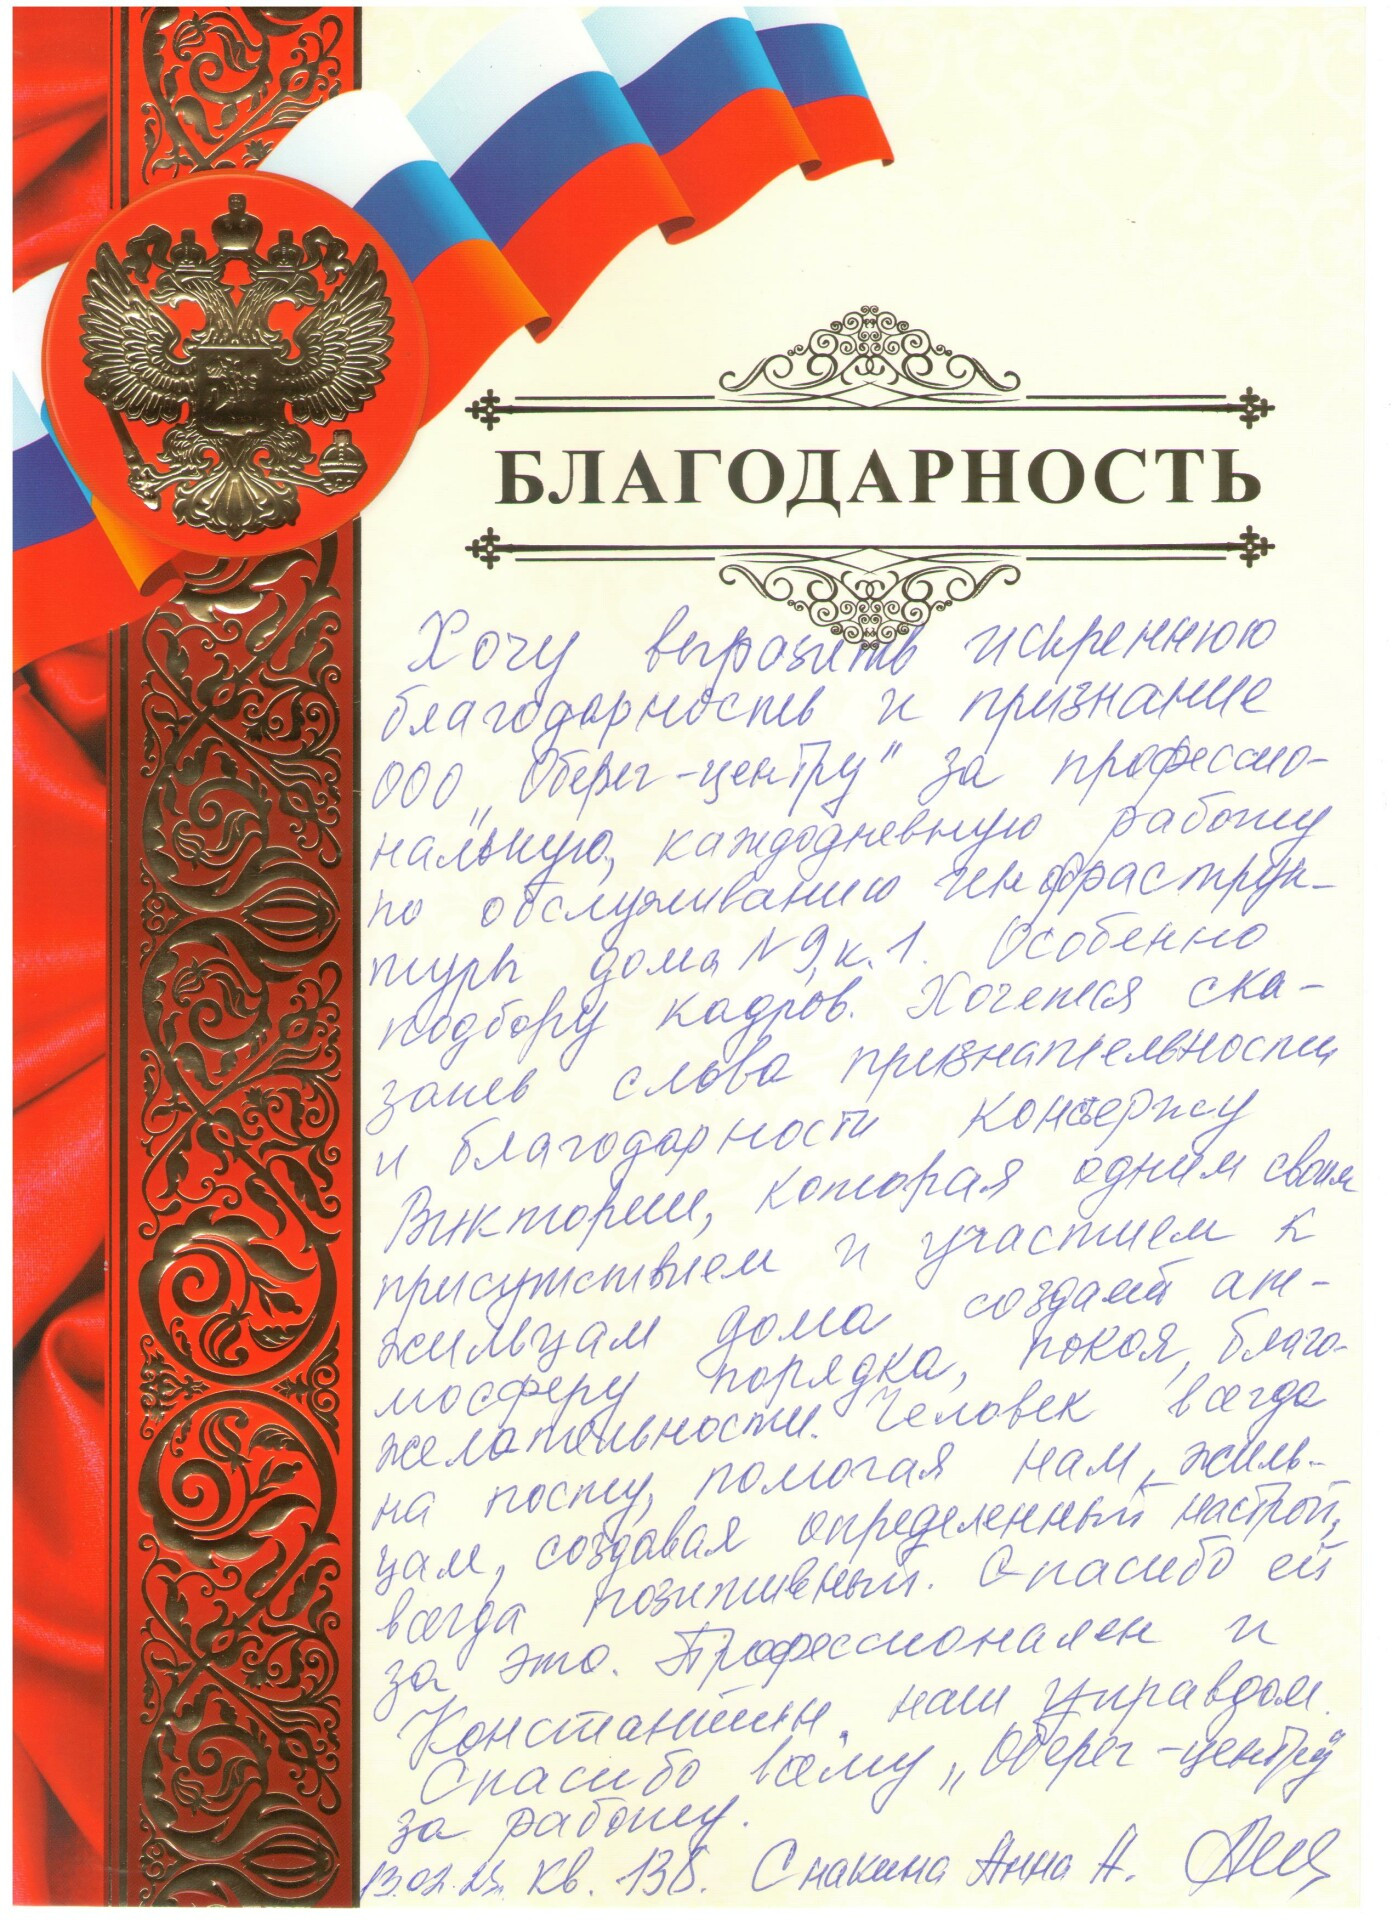 БЛАГОДАРНОСТЬ
Хочу выразить искреннюю
благодарность и признание
ООО „Оберег-центру" за профессио-
нальную, каждодневную работу
по обслуживанию инфраструк-
туры дома N 9, к. 1. Особенно
подбору кадров. Хочется ска-
зать слова признательности
и благодарности консержу
Виктории, которая одним своим
присутствием и участием к
жильцам дома создаёт ат-
мосферу порядка, покоя, благо-
желательности. Человек всегда
на посту, помогая нам, жиль-
цам, создавая определенный настрой,
всегда позитивный. Спасибо ей
за это. Профессионален и
Константин, наш управдом.
Спасибо всему „Оберег-центру"
за работу.
13.02.25. кв. 138. Снакина Анна А.